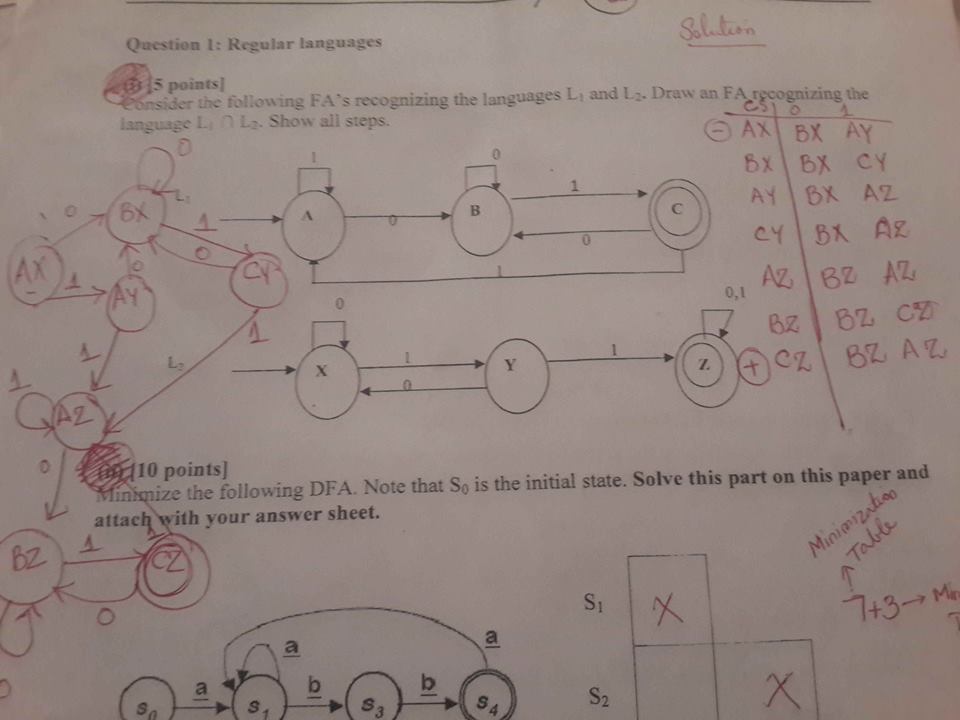 Solution
Question 1: Regular languages
[5 points]
Consider the following FA's recognizing the languages L₁ and L₂. Draw an FA recognizing the
language L₁ ∩ L₂. Show all steps.
CS 0 1
- AX BX AY
BX BX CY
AY BX AZ
CY BX AZ
AZ BZ AZ
BZ BZ CZ
+ CZ BZ AZ
L₁
1 0
A 0 B 1 C
0
1
L₂
0 0,1
X 1 Y 1 Z
0
0
0 BX 1
0
AX 1 AY 0 CY
1 1
1 AZ
0
BZ 1 CZ
0
0
[10 points]
Minimize the following DFA. Note that S₀ is the initial state. Solve this part on this paper and
attach with your answer sheet.
Minimization
Table
7+3 →
S₁ X
S₂ X
a a
S₀ a S₁ b S₃ b S₄